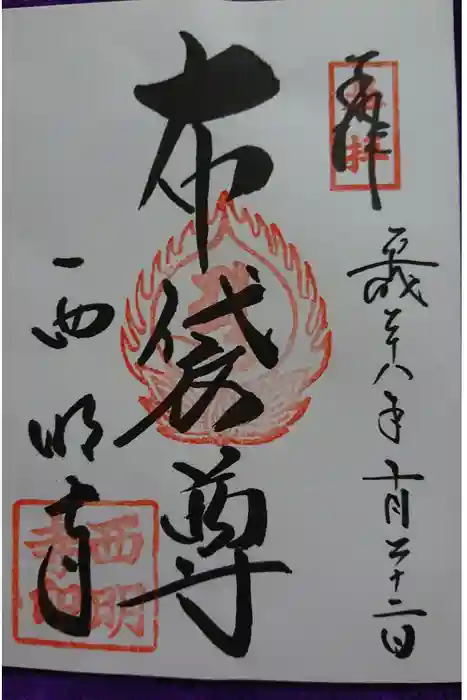 奉拝
平成二十八年十月二十二日
布袋尊
西明寺
西明
寺印